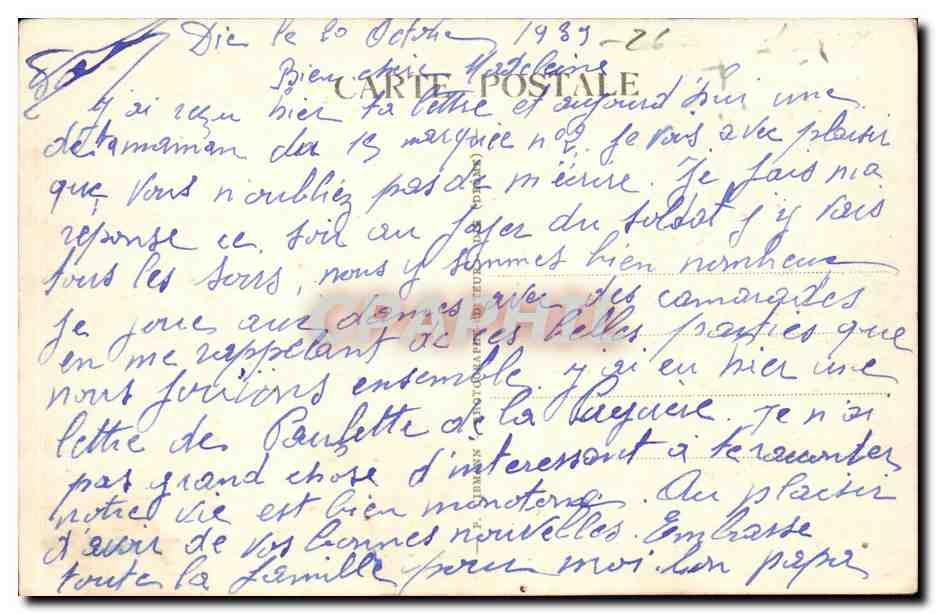 Die le 20 Octobre 1939 - 26
Bien chère Madeleine
CARTE POSTALE
j'ai reçu hier ta lettre et aujourd'hui une
de ta maman du 15 marquée n° 2. Je vois avec plaisir
que vous n'oubliez pas de m'écrire. Je fais ma
réponse ce soir au foyer du soldat j'y vais
tous les soirs, nous y sommes bien nombreux
Je joue aux dames avec des camarades
en me rappelant de ces belles parties que
nous jouions ensemble. j'ai eu hier une
lettre de Paulette de la. Je n'ai
pas grand chose d'interessant à te raconter
notre vie est bien monotone. Au plaisir
d'avoir de vos bonnes nouvelles. Embrasse
toute la famille pour moi ton papa
CPAPHIL